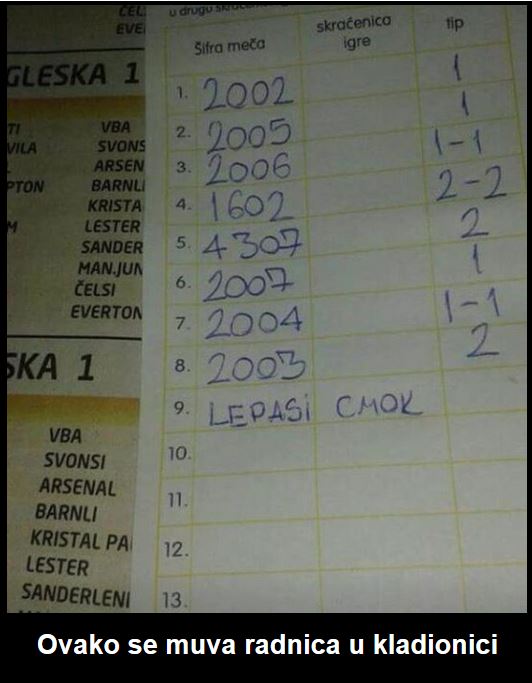 u drugu
ČEL
EVE
Šifra meča skraćenica igre tip
GLESKA 1
1. 2002 1
2. 2005 1
3. 2006 1-1
4. 1602 2-2
5. 4307 2
6. 2007 1
7. 2004 1-1
8. 2003 2
9. LEPA SI CMOK
10.
11.
12.
13.
TI VBA
VILA SVONS
ARSEN
PTON BARNLI
KRISTA
M LESTER
SANDER
MAN.JUN
ČELSI
EVERTON
SKA 1
VBA
SVONSI
ARSENAL
BARNLI
KRISTAL PA
LESTER
SANDERLENI
Ovako se muva radnica u kladionici